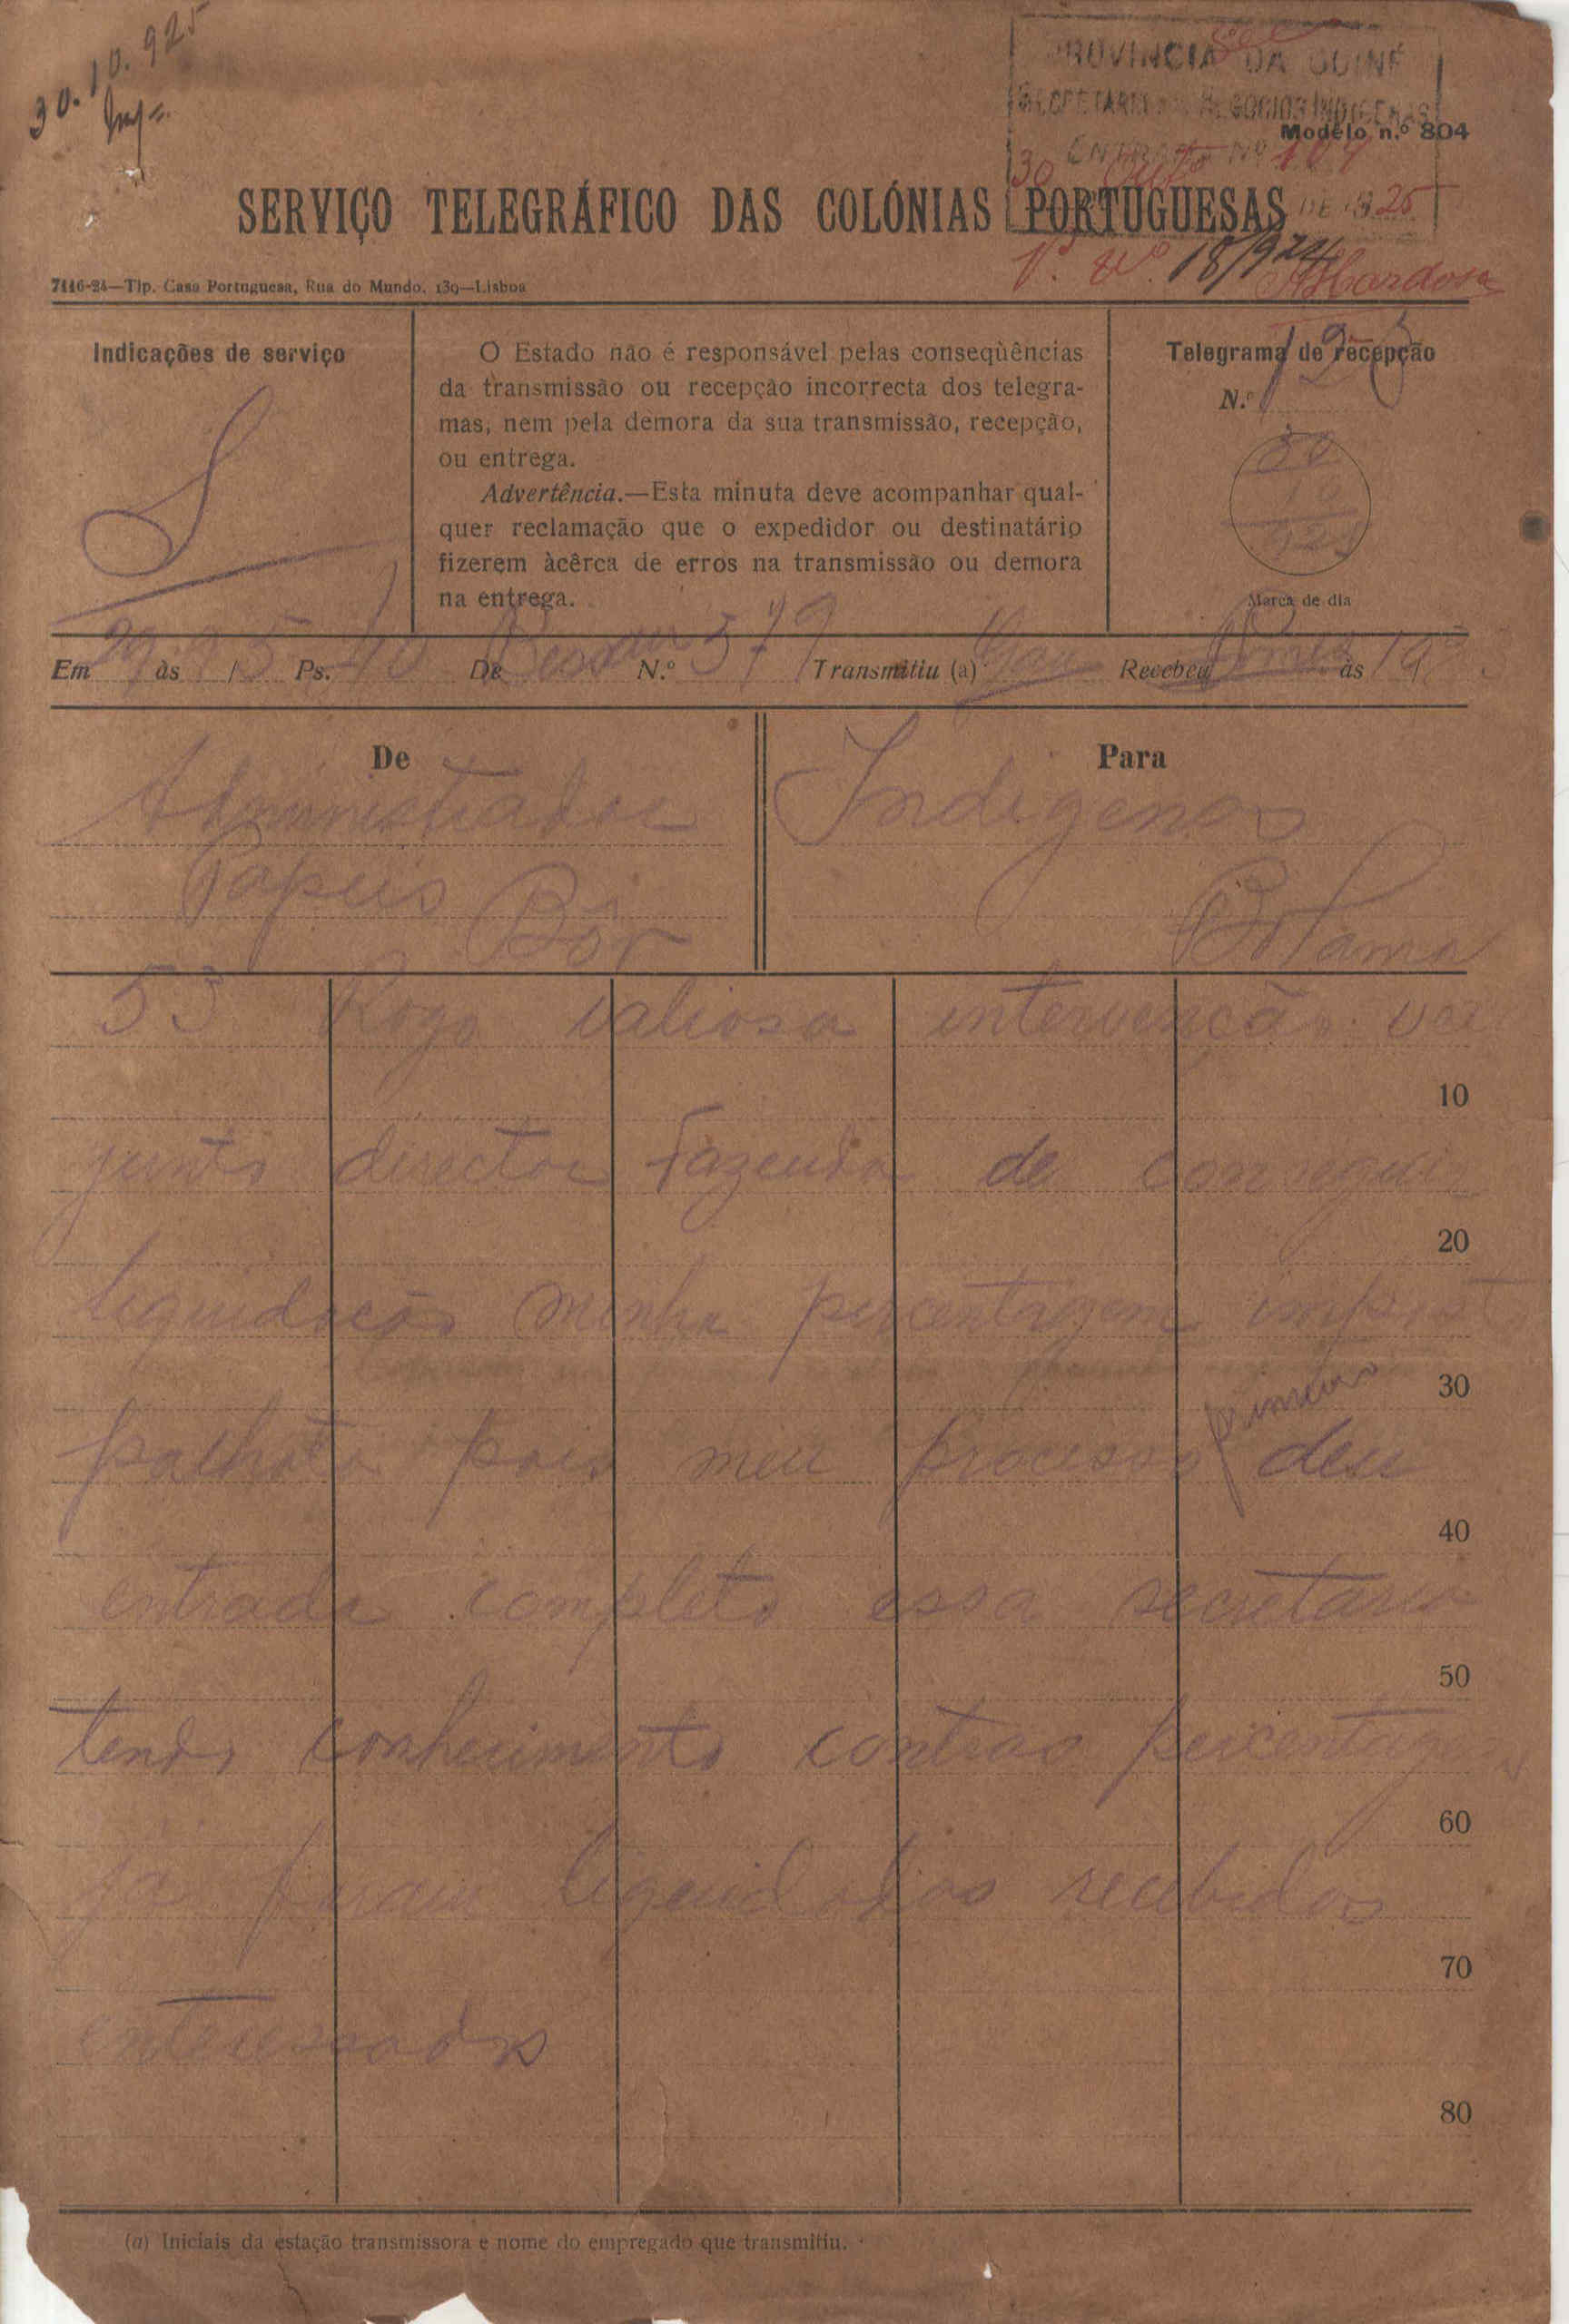 30.10.925
PROVINCIA DA GUINÉ
SECRETARIA NEGOCIOS INDIGENAS
Modêlo n.º 804
ENTRADA Nº 107
30 DE 1925
SERVIÇO TELEGRÁFICO DAS COLÓNIAS PORTUGUESAS
18/924 Cardoso
7116-24—Tip. Casa Portuguesa, Rua do Mundo, 139—Lisboa
Indicações de serviço
S
O Estado não é responsável pelas conseqüências
da transmissão ou recepção incorrecta dos telegra-
mas, nem pela demora da sua transmissão, recepção,
ou entrega.
Advertência.—Esta minuta deve acompanhar qual-
quer reclamação que o expedidor ou destinatário
fizerem àcêrca de erros na transmissão ou demora
na entrega.
Telegrama de recepção
N.º 128
30
10
925
Marca de dia
Em 29 às / Ps. 40 De Bissau N.º 579 Transmitiu (a) Recebeu às 19
De
Administrador
Papeis Bôr
Para
Indigenas
Bolama
53 Rogo valiosa intervenção
10
junto director fazenda de conseguir
20
liquidação minha percentagem imposto
30
primeiro
palhota pois meu processo deu
40
entrada completo essa secretaria
50
tendo conhecimento contras percentagens
60
já foram liquidados recebidos
70
interessados
80
(a) Iniciais da estação transmissora e nome do empregado que transmitiu.